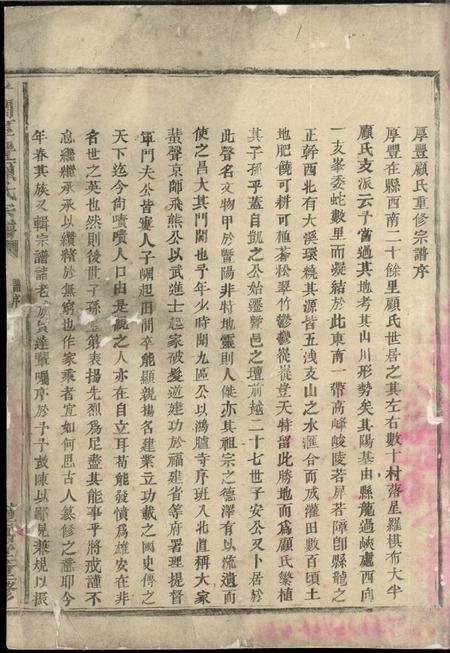 厚豐顧氏重修宗譜序
厚豐在縣西南二十餘里顧氏世居之其左右數十村落星羅棋布大半
顧氏支派云予嘗過其地考其山川形勢矣其陽基由縣龍過峽處西向
一支峯委蛇數里而凝結於此東南一帶高峰峻陵若屏若障卽縣龍之
正幹西北有大溪環繞其源皆五洩支山之水滙合而成灌田數百頃土
地肥饒可耕可植蒼松翠竹鬱鬱從從豈天特留此勝地而爲顧氏繁植
其子孫乎蓋自凱之公始遷暨邑之壇前越二十七世子安公又卜居於
此聲名文物甲於暨陽非特地靈則人傑亦其祖宗之德澤有以流遺而
使之昌大其門閭也予年少時聞九區公以鴻臚寺序班入北直稱大家
蜚聲京師飛熊公以武進士起家破髮逆建功於福建省等府署理提督
軍門夫公皆寒人子崛起田間卒能顯親揚名建業立功載之國史傳之
天下迄今尙嘖嘖人口由是觀之人亦在自立耳苟能發憤爲雄安在非
名世之英也然則後世子孫豈第表揚先烈爲足盡其能事乎將戒謹不
怠繼繼承承以纘緒於無窮也作家乘者宜如何思古人纂修之意耶今
年春其族又輯宗譜諸老成賢達暨囑序於予予敢陳以鄙見兼規以振
譜序